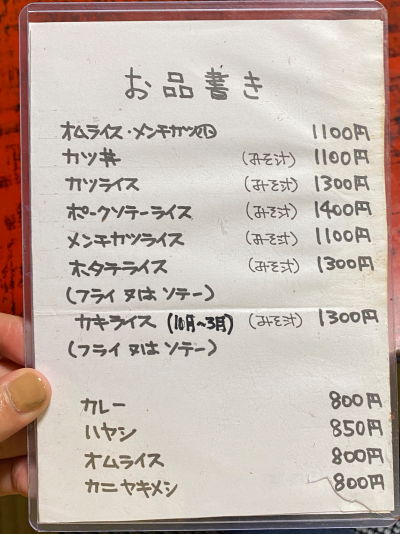 お品書き
オムライス・メンチカツ 1100円
カツ丼 (みそ汁) 1100円
カツライス (みそ汁) 1300円
ポークソテーライス (みそ汁) 1400円
メンチカツライス (みそ汁) 1100円
ホタテライス (みそ汁) 1300円
(フライ又はソテー)
カキライス (10月〜3月) (みそ汁) 1300円
(フライ又はソテー)
カレー 800円
ハヤシ 850円
オムライス 800円
カニヤキメシ 800円